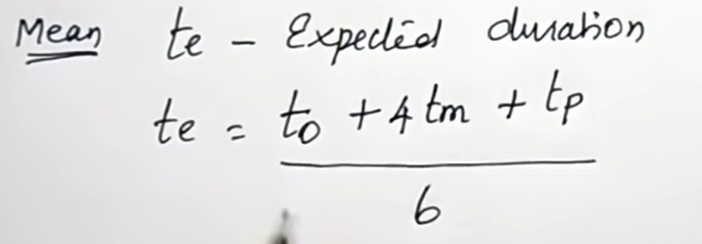 Mean te - Expected duration
te = to + 4tm + tp
6